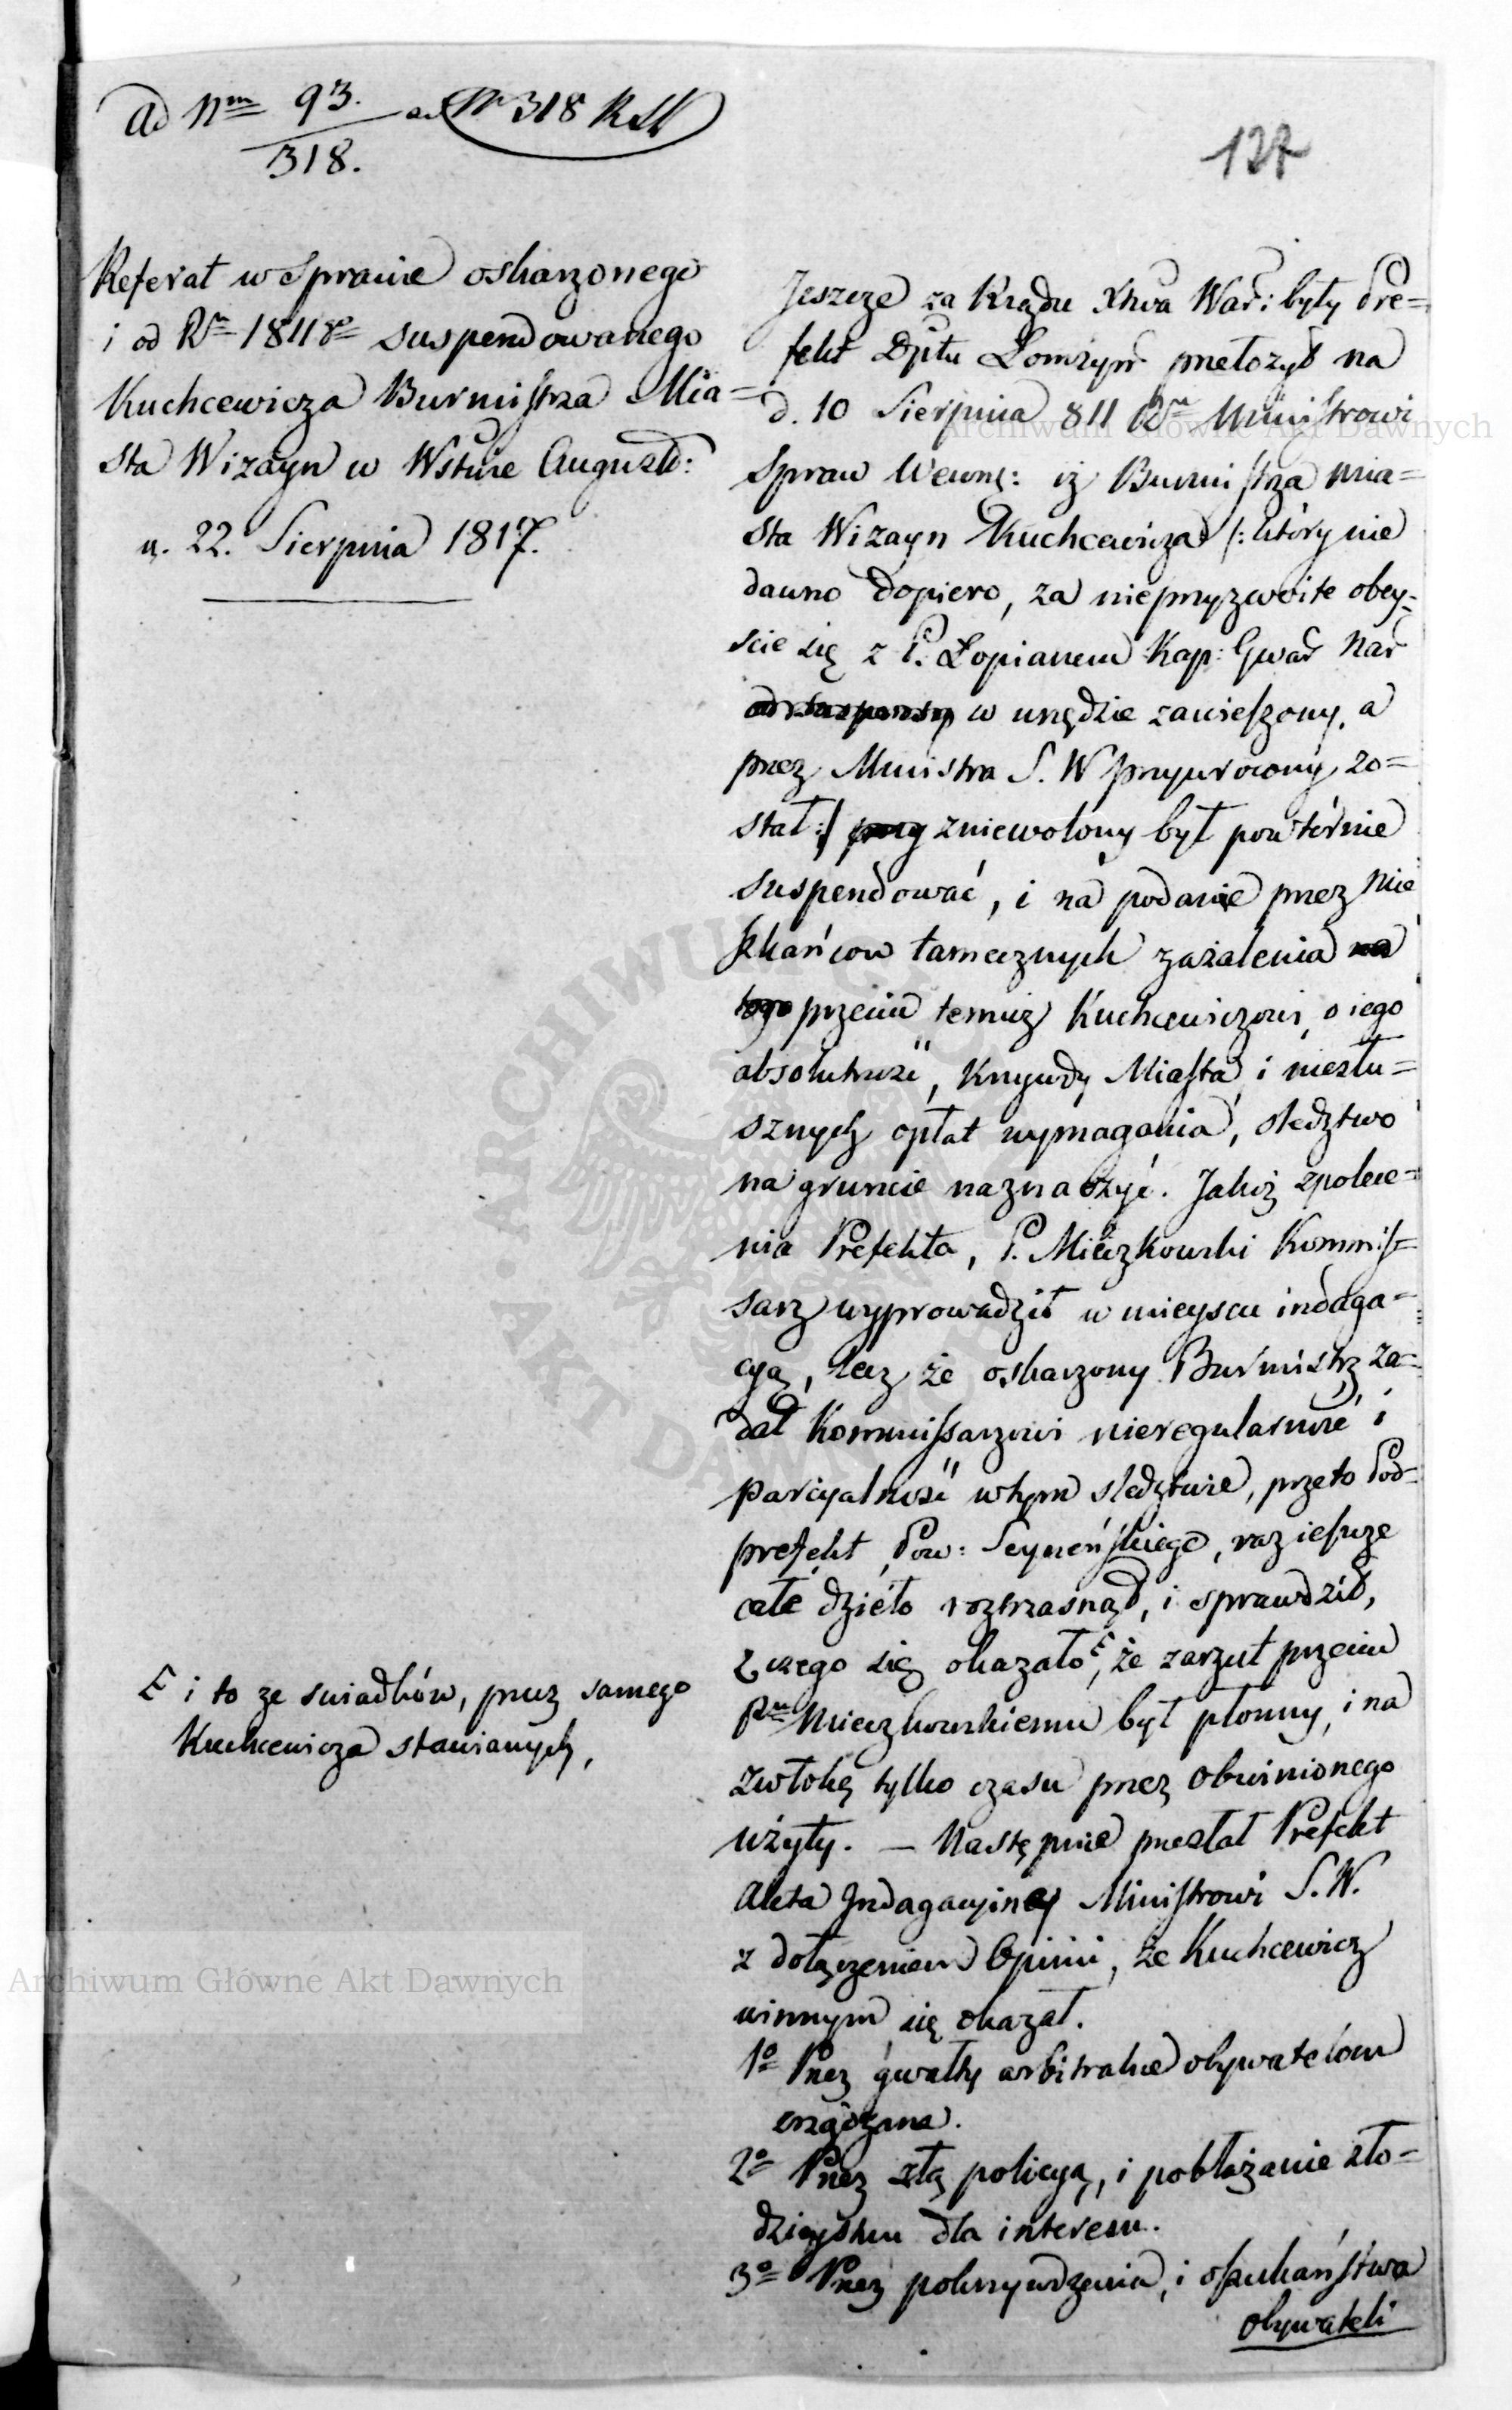 Ad Nm 93./318. ad Nr 318 RSt
127
Referat w Sprawie oskarzonego
i od Rku 1811go suspendowanego
Kuchcewicza Burmistrza Mia=
sta Wizayn w Wstwie August:
d. 22. Sierpnia 1817.
Jeszcze za Rządu Xtwa War: były Pre=
fekt Dptu Łomżyń przełożył na
d. 10 Sierpnia 811 Rku Ministrowi
Spraw Wewnę: iż Burmistrza mia=
sta Wizayn Kuchcewicza /: który nie
dawno dopiero, za nieprzyzwoite obey=
scie się z P. Łopianem Kap: Gwar Nar
w urzędzie zawieszony, a
przez Ministra S. W przywrocony zo=
stał :/ zniewolony był powtórnie
suspendować, i na podanie przez mie
szkańcow tamecznych zażalenia
przeciw temuż Kuchcewiczowi, o iego
absolutność, krzywdy Miasta, i niesłu=
sznych opłat wymagania, sledztwo
na gruncie naznaczyć. Jakoż z polece=
nia Prefekta, P. Mieczkowski Kommis=
sarz wyprowadził w mieyscu indaga=
cyą, lecz że oskarzony Burmistrz za=
dał Kommissarzowi nieregularność i
parcyalność w tym sledztwie, przeto Pod=
prefekt Pow: Seyneńskiego, raz ieszcze
całe dzieło roztrzasnął, i sprawdził,
z czego się okazało, że zarzut przeciw
Pnu Mieczkowskiemu był płonny, i na
zwłokę tylko czasu przez obwinionego
użyty. — Następnie przesłał Prefekt
Akta Indagacyine Ministrowi S. W.
z dołączeniem Opinii, że Kuchcewicz
winnym się okazał.
1o Przez gwałty arbitralne obywatelom
wrządzane.
2o Przez złą policyą, i pobłażanie zło=
dzieystwu dla interesu.
3o Przez pokrzywdzenia, i oszukaństwa
obywateli
i to ze swiadków, przez samego
Kuchcewicza stawianych,
Archiwum Główne Akt Dawnych
Archiwum Główne Akt Dawnych